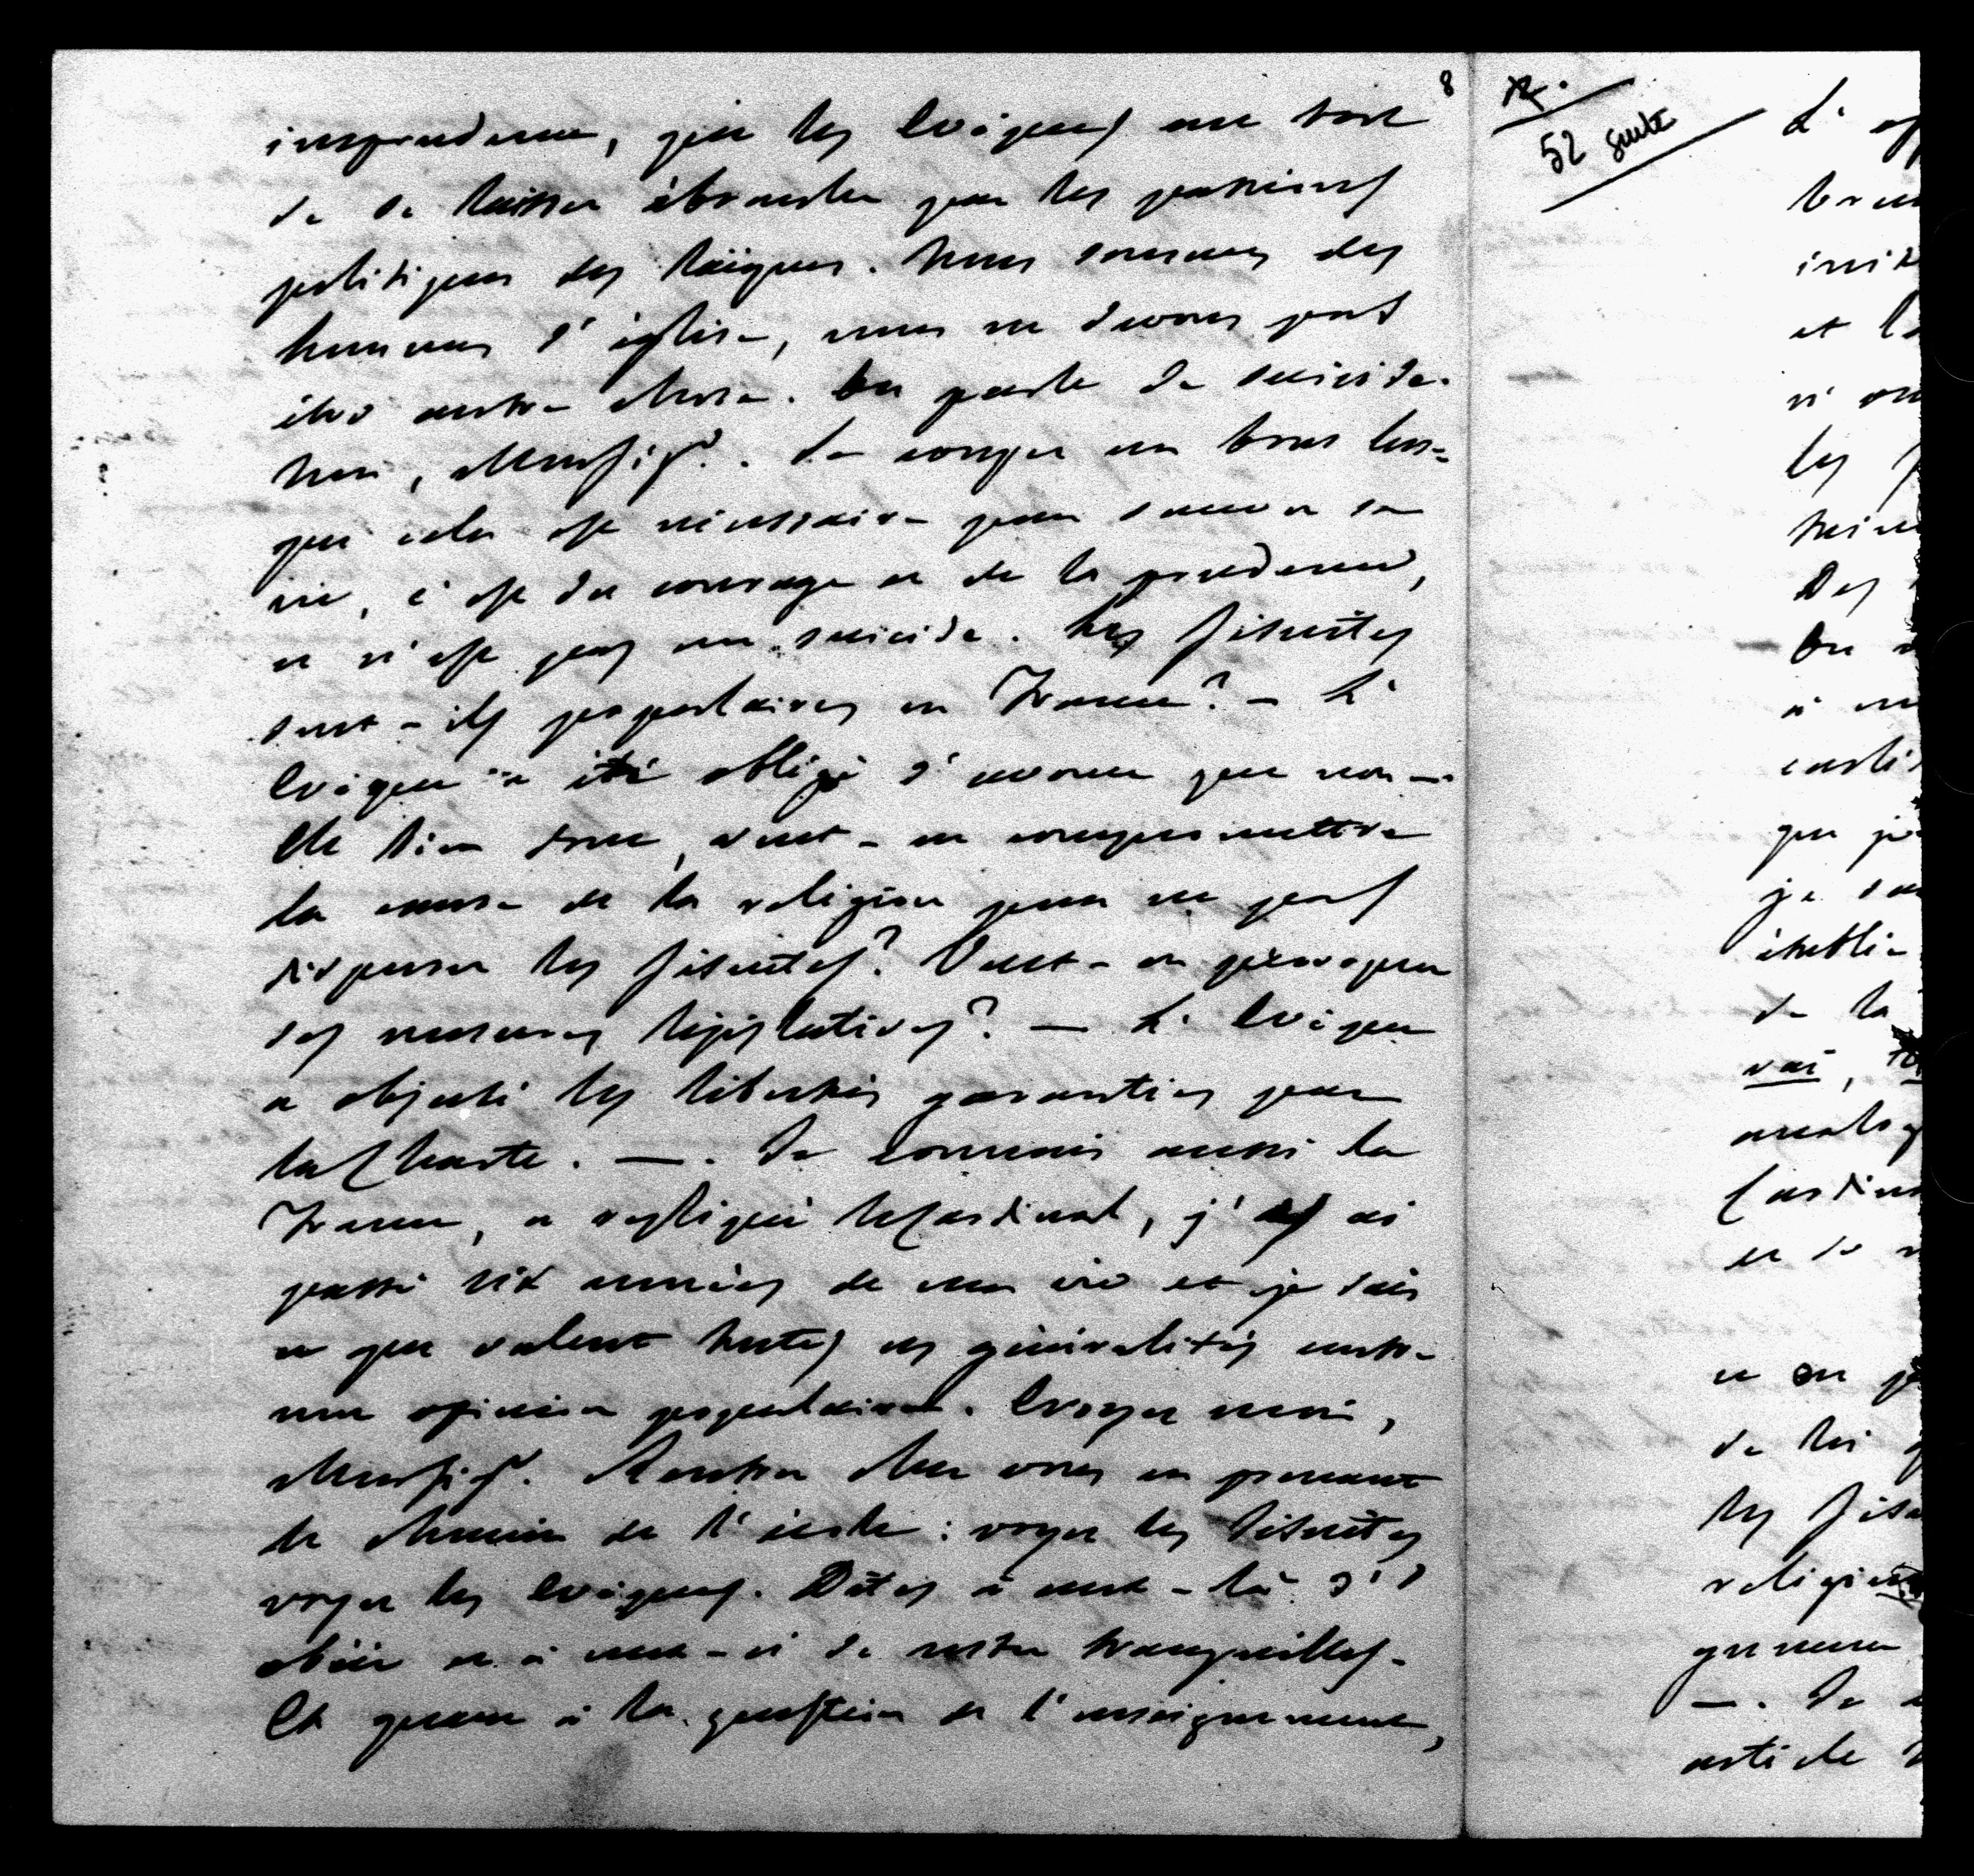 8
imprudence, que les Evêques ont tort
de se laisser ébranler par les passions
politiques des laïques. Nous sommes des
hommes d'église, nous ne devons pas
être autre chose. On parle de suicide.
Non, Monsigr. Se couper un bras lors=
que cela est nécessaire pour sauver sa
vie, c'est du courage et de la prudence,
ce n'est pas un suicide. Les Jésuites
sont-ils populaires en France? — L'
Evêque a été obligé d'avouer que non —.
Eh bien donc, veut-on compromettre
la cause de la religion pour ne pas
disperser les Jésuites? Veut-on provoquer
des mesures législatives? — L'Evêque
a objecté les libertés garanties par
la Charte. —. Je connais aussi la
France, a répliqué le Cardinal, j'y ai
passé six années de ma vie et je sais
ce que valent toutes ces généralités contre
une opinion populaire. Croyez moi,
Monsigr. Rentrez chez vous en prenant
le chemin de l'école: voyez les Jésuites
voyez les Evêques. Dites à ceux-là d'
obéir et à ceux-ci de rester tranquilles.
Et quant à la question de l'enseignement,
52 suite
L'
et
les
Des
On
à
que
je
de la
et de
ce
de
les
—. Je
article